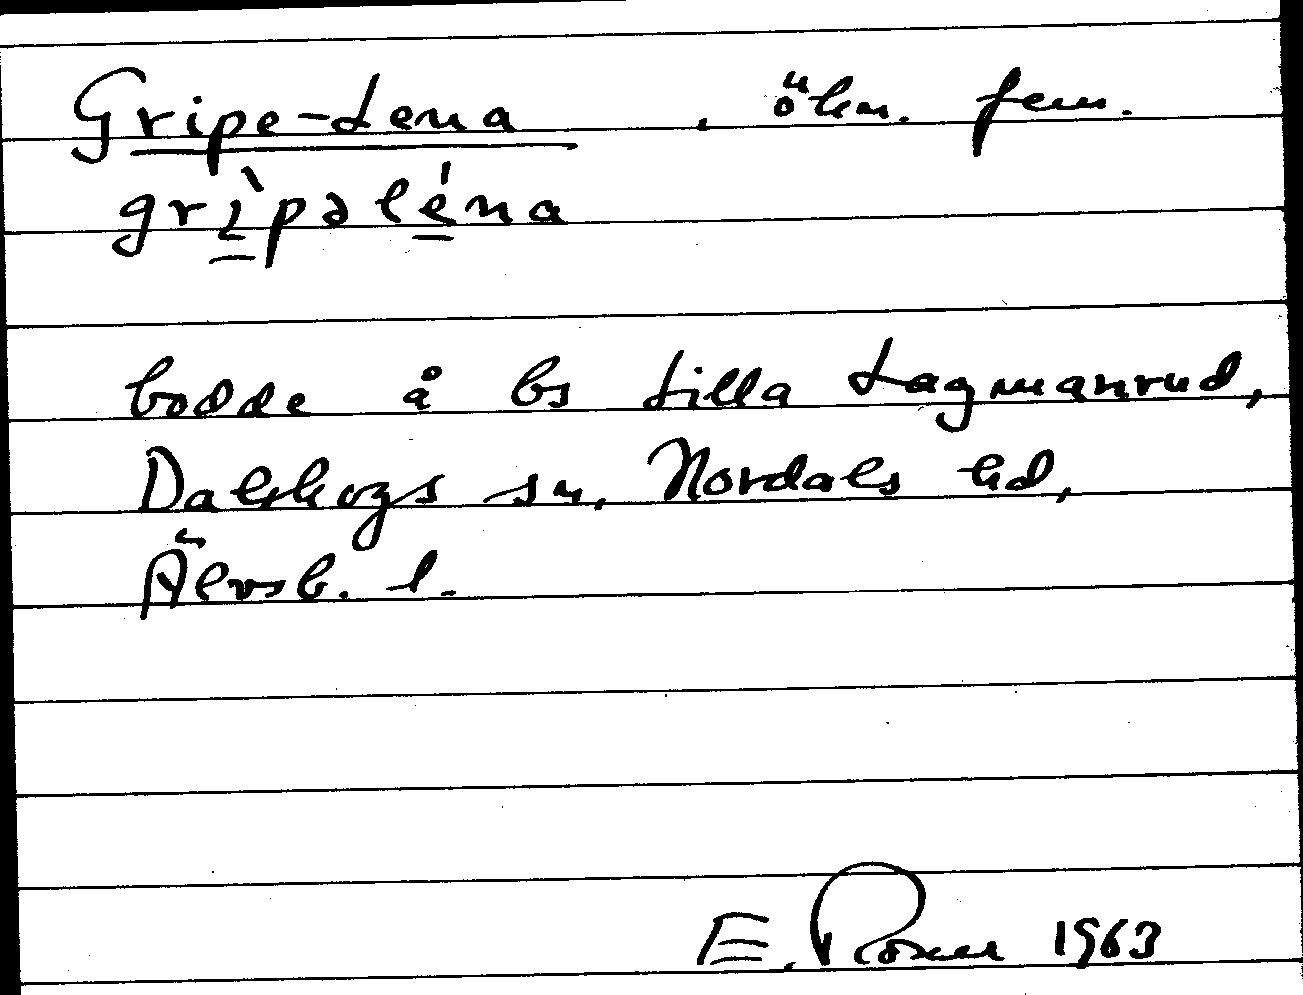 Gripe-Lena , ökn. fem.
grı̀pəléna
bodde å bs Lilla Lagmanrud,
Dalskogs sn, Nordals hd,
Älvsb. l.
E. Rosner 1963